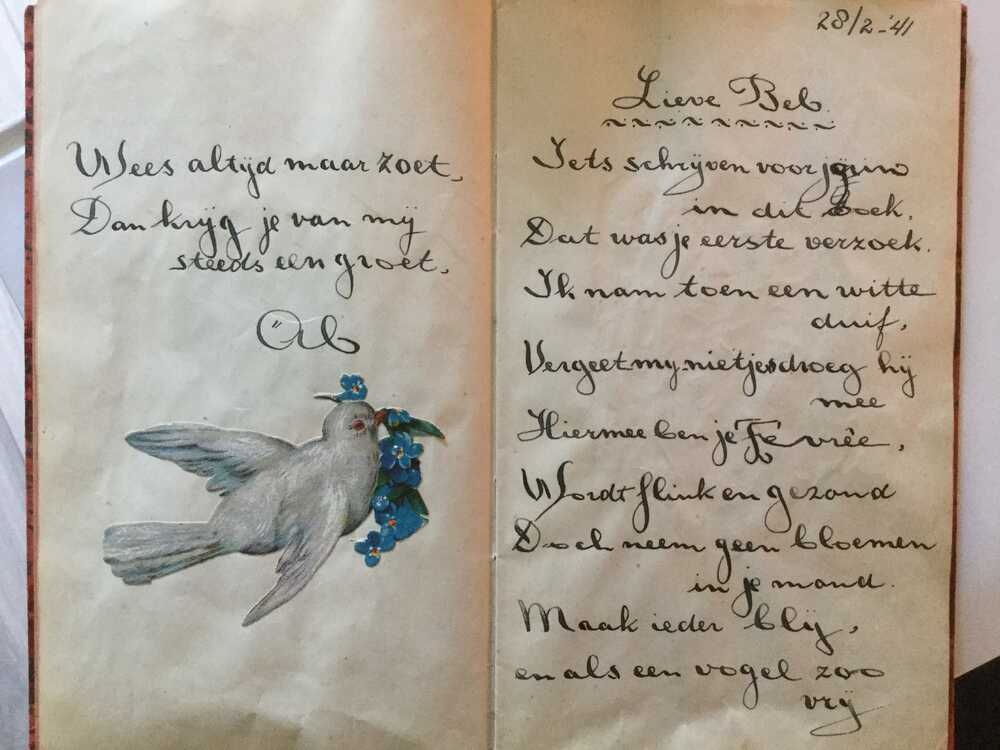 Wees altijd maar zoet,
Dan krijg je van mij
steeds een groet.
Ab
28/2-'41
Lieve Beb.
Iets schrijven voor
in dit boek,
Dat was je eerste verzoek.
Ik nam toen een witte
duif,
Vergeet mij nietjes droeg hij
mee
Hiermee ben je tevrêe,
Wordt flink en gezond
Doch neem geen bloemen
in je mond.
Maak ieder blij,
en als een vogel zoo
vrij